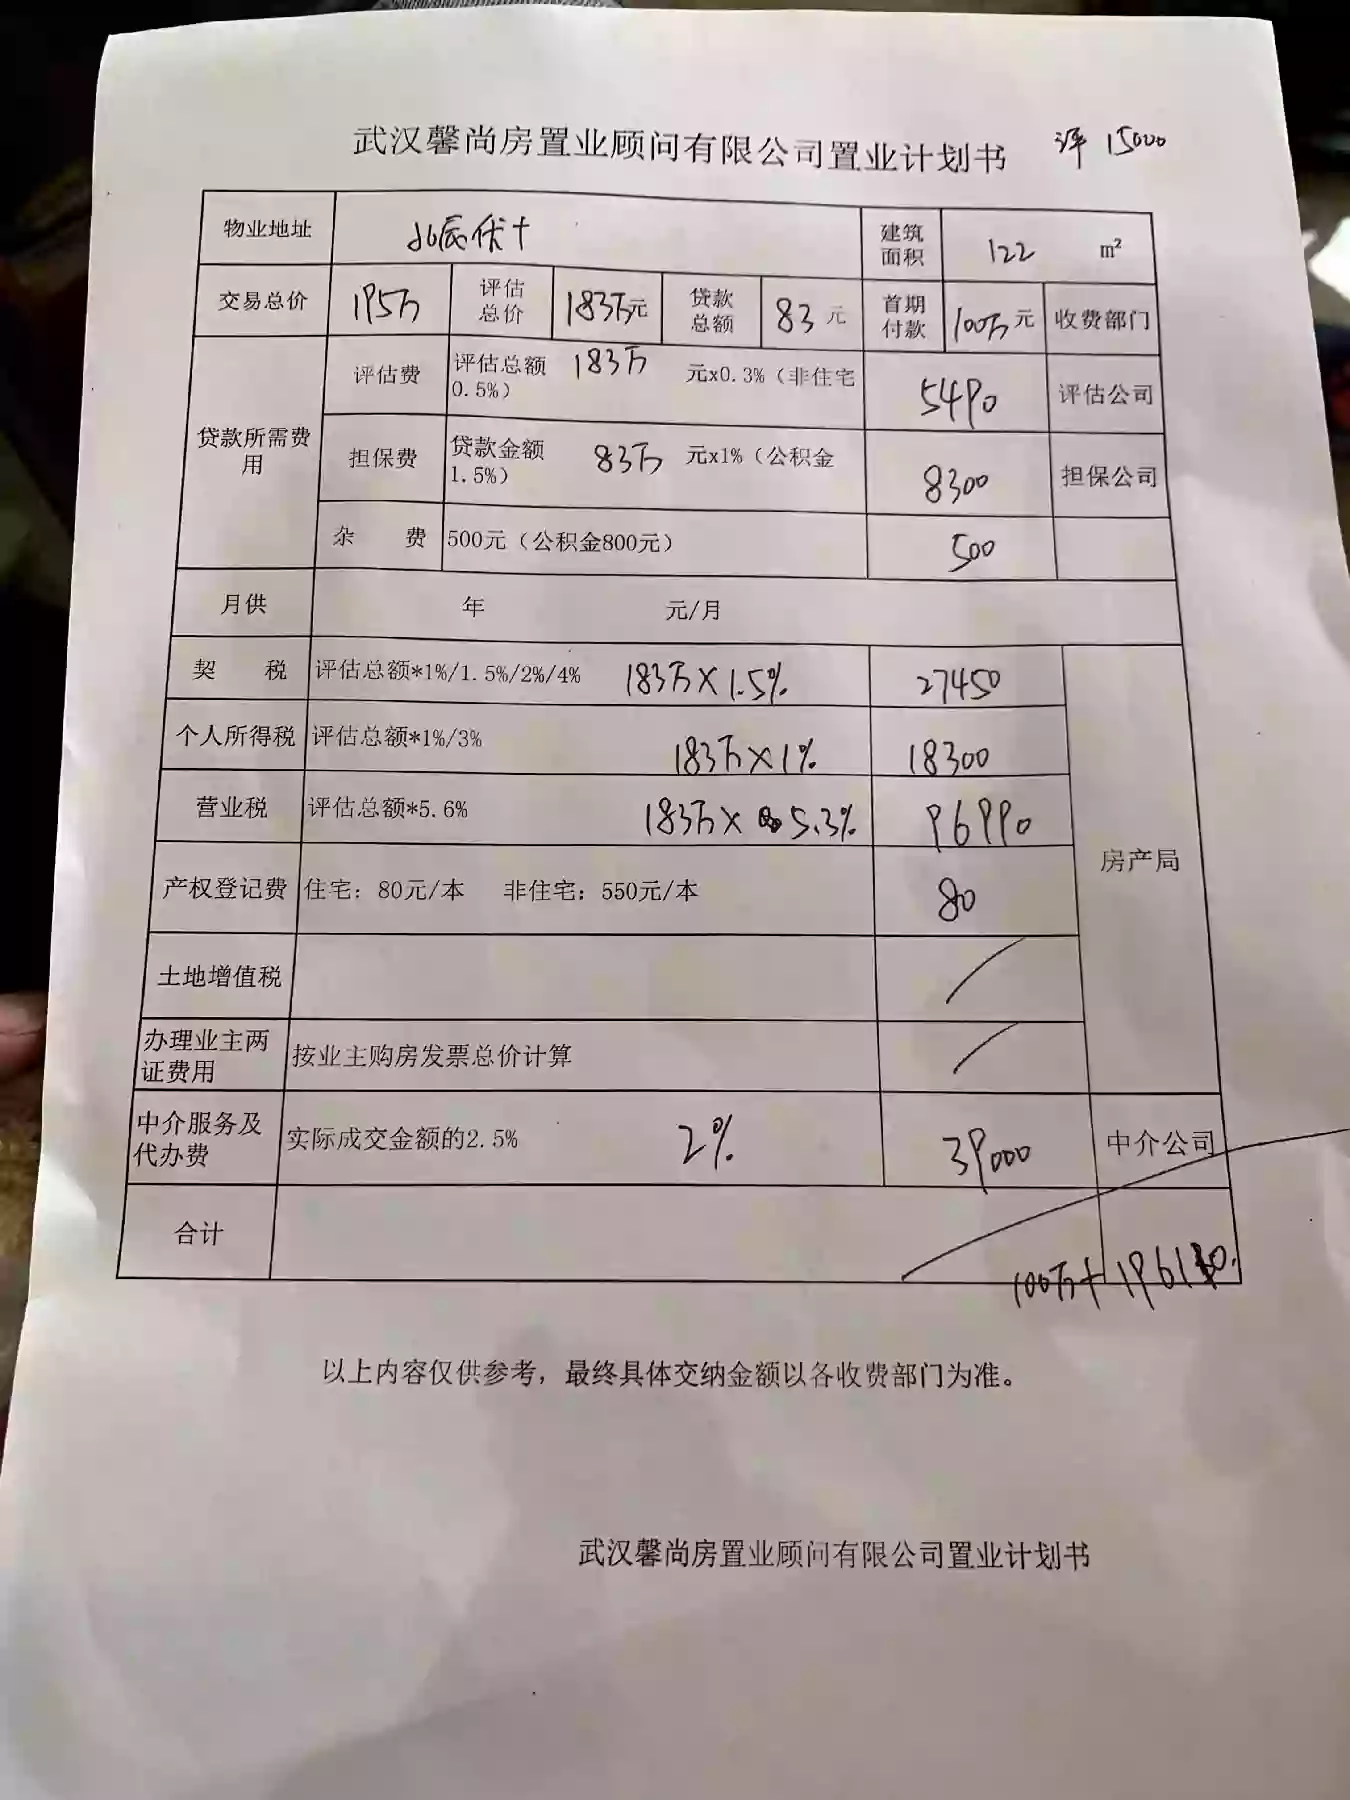 武汉馨尚房置业顾问有限公司置业计划书 评 15000
物业地址 北辰优+ 建筑面积 122 m²
交易总价 195万 评估总价 183万元 贷款总额 83 元 首期付款 100万元 收费部门
贷款所需费用
评估费 评估总额 183万 元x0.3%（非住宅0.5%） 5490 评估公司
担保费 贷款金额 83万 元x1%（公积金1.5%） 8300 担保公司
杂 费 500元（公积金800元） 500
月供 年 元/月
契 税 评估总额*1%/1.5%/2%/4% 183万×1.5% 27450
个人所得税 评估总额*1%/3% 183万×1% 18300
营业税 评估总额*5.6% 183万× 5.3% 96990
房产局
产权登记费 住宅：80元/本 非住宅：550元/本 80
土地增值税 /
办理业主两证费用 按业主购房发票总价计算 /
中介服务及代办费 实际成交金额的2.5% 2% 39000 中介公司
合计 100万+196110.
以上内容仅供参考，最终具体交纳金额以各收费部门为准。
武汉馨尚房置业顾问有限公司置业计划书